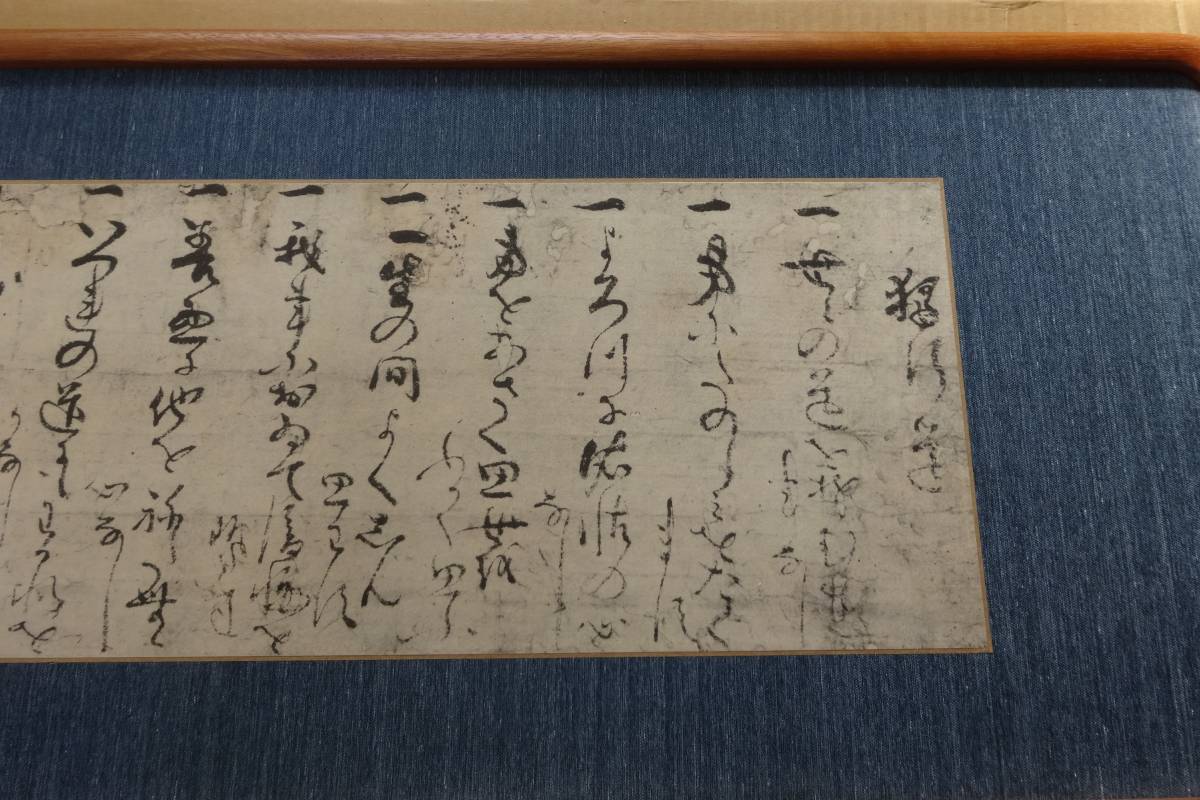 獨行道
一 世々の道をそむく事
なし
一 身にたのしみをたく
ます
一 よろつに依怙の心
なし
一 身をあさく思世を
ふかく思ふ
一 一生の間よくしん
思わす
一 我事におゐて後悔を
せす
一 善惡に他をねたむ
心なし
一 いつれの道にもわかれを